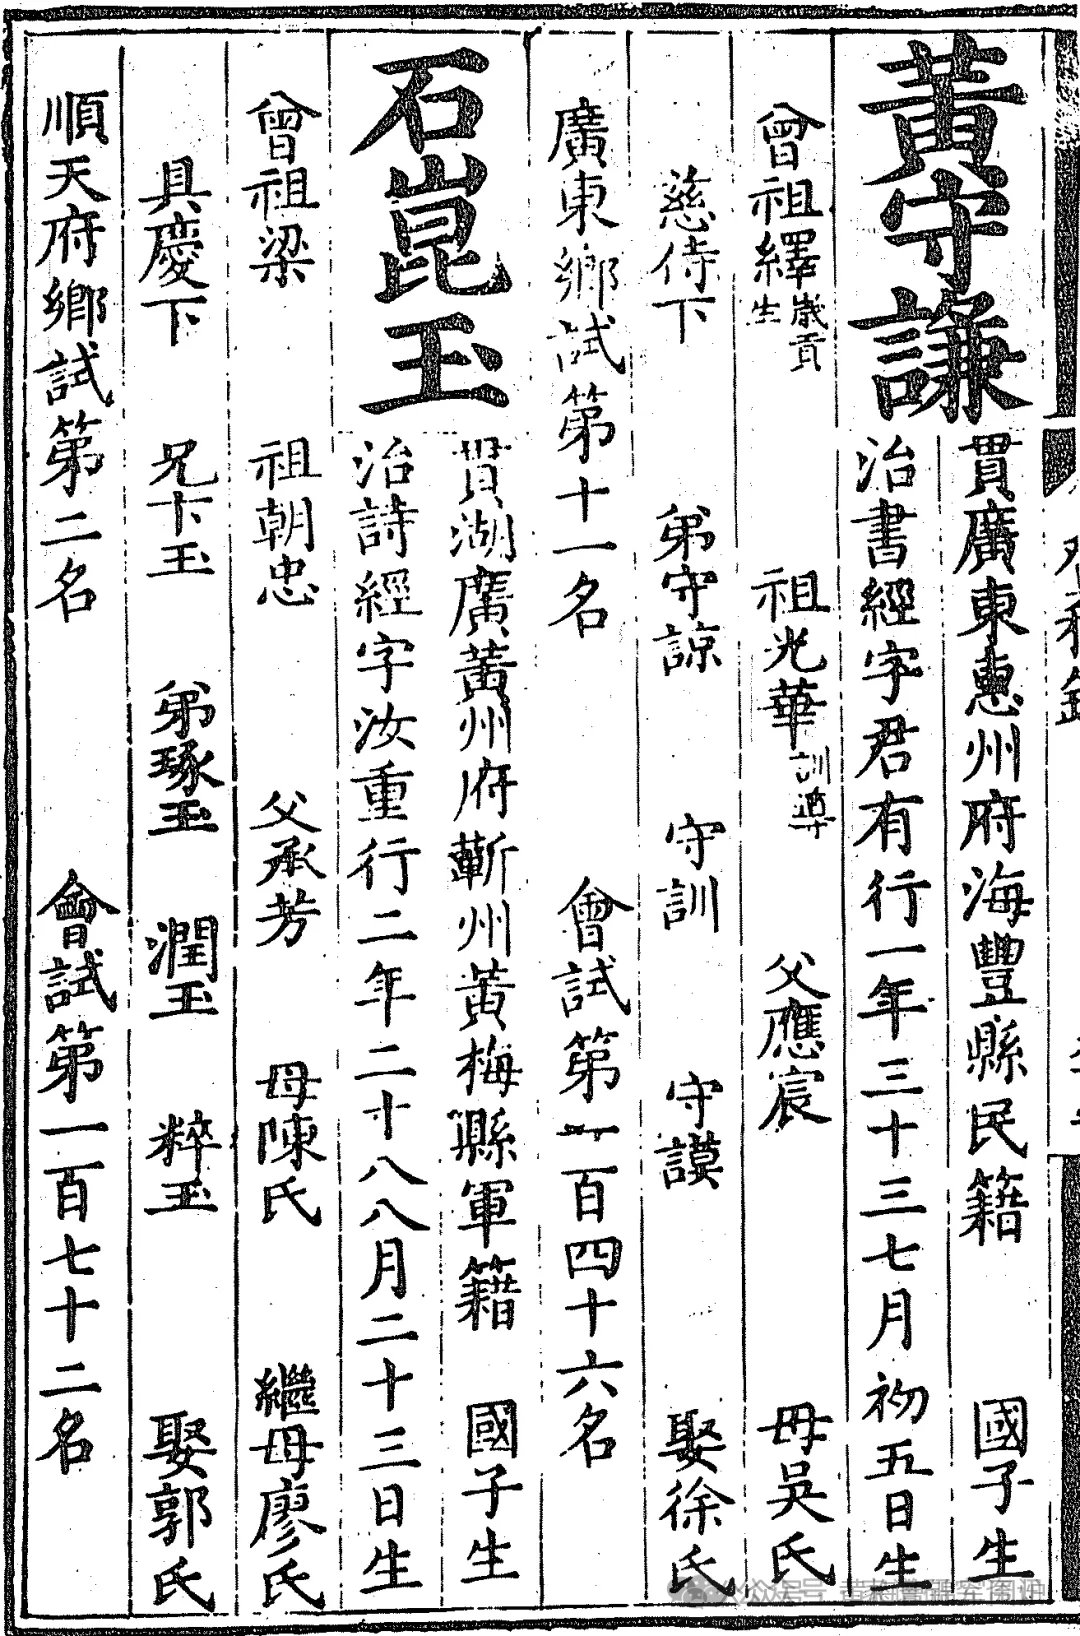 黃守謙
貫廣東惠州府海豐縣民籍 國子生
治書經字君有行一年三十三七月初五日生
曾祖繹歲貢生 祖光華訓導 父應宸 母吳氏
慈侍下 弟守諒 守訓 守謨 娶徐氏
廣東鄉試第十一名 會試第一百四十六名
石崑玉
貫湖廣黃州府蘄州黃梅縣軍籍 國子生
治詩經字汝重行二年二十八八月二十三日生
曾祖梁 祖朝忠 父承芳 母陳氏 繼母廖氏
具慶下 兄卞玉 弟琢玉 潤玉 粹玉 娶郭氏
順天府鄉試第二名 會試第一百七十二名